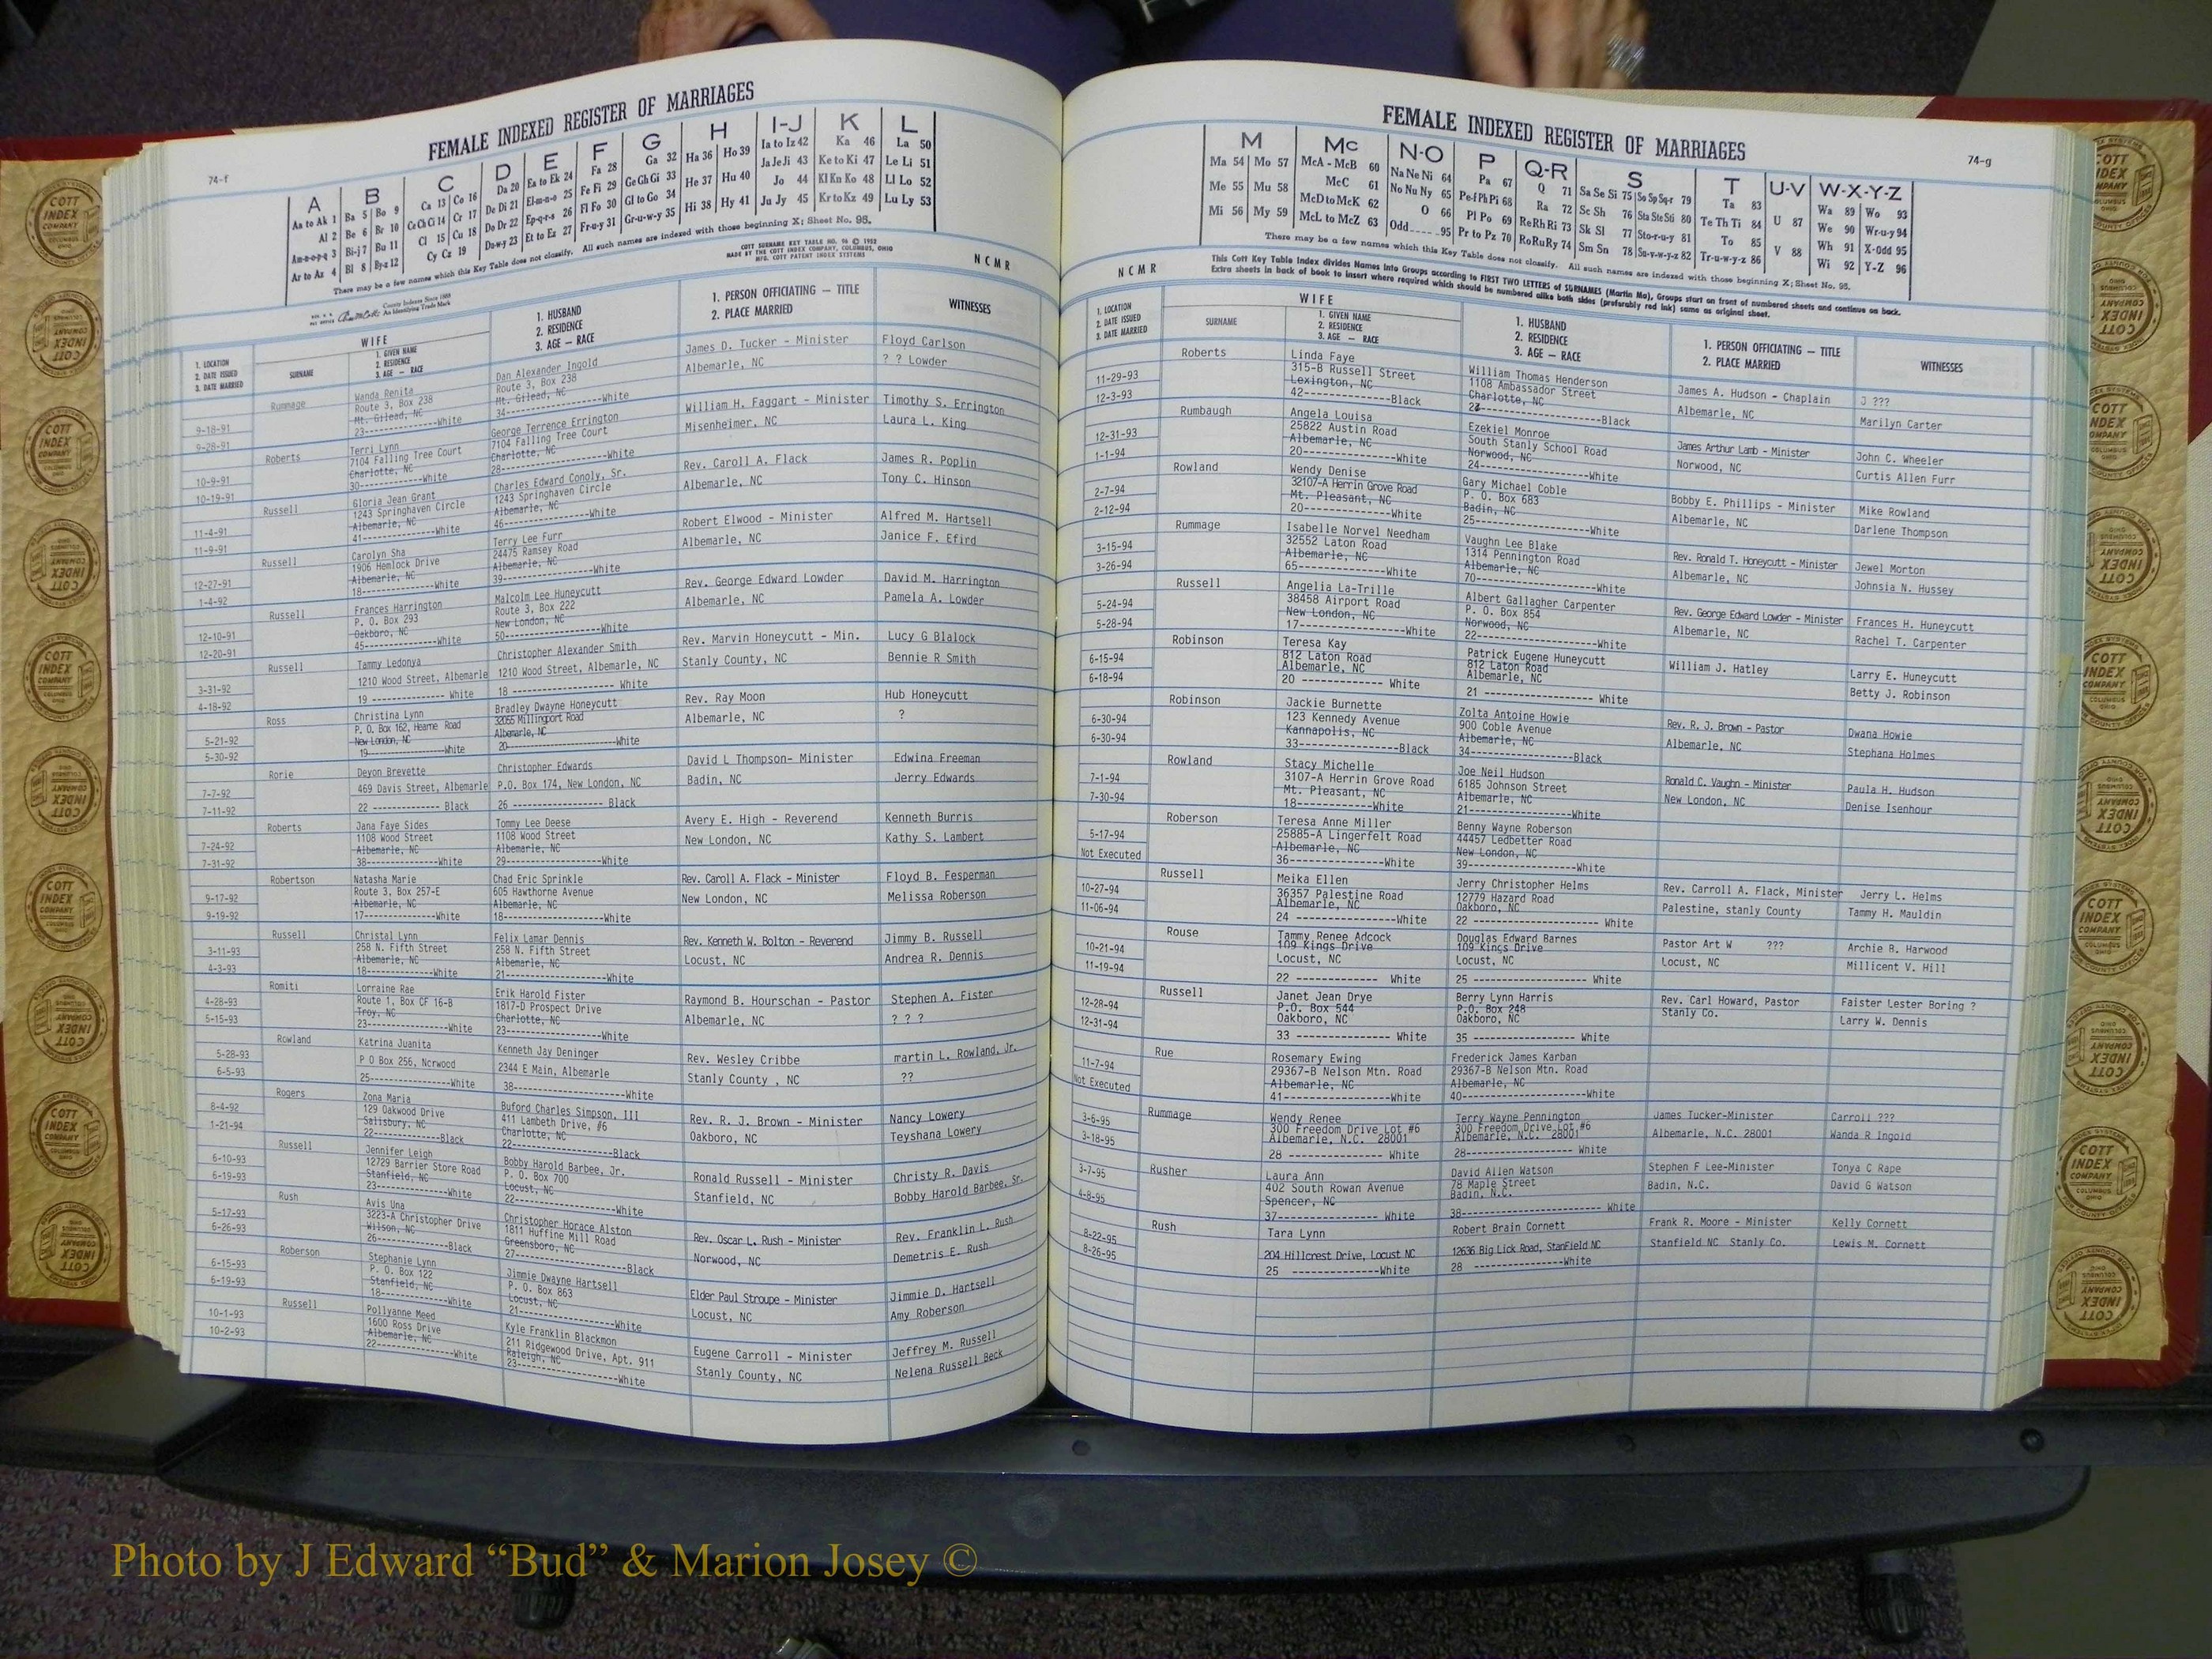 FEMALE INDEXED REGISTER OF MARRIAGES
74-f
A B C D E F G H I-J K L
Aa to Ak 1 Ba 5 Bo 9 Ca 13 Co 16 Da 20 Ea to Ek 24 Fa 28 Ga 32 Ha 36 Ho 39 Ia to Iz 42 Ka 46 La 50
Al 2 Be 6 Br 10 Ce Ch Ci 14 Cr 17 De Di 21 El-m-n-o 25 Fe Fi 29 Ge Gh Gi 33 He 37 Hu 40 Ja Je Ji 43 Ke to Ki 47 Le Li 51
Am-n-o-p-q 3 Bi-j 7 Bu 11 Cl 15 Cu 18 Do Dr 22 Ep-q-r-s 26 Fl Fo 30 Gl to Go 34 Hi 38 Hy 41 Jo 44 Kl Kn Ko 48 Ll Lo 52
Ar to Az 4 Bl 8 By-z 12 Cy Cz 19 Du-w-y 23 Et to Ez 27 Fr-u-y 31 Gr-u-w-y 35 Ju Jy 45 Kr to Kz 49 Lu Ly 53
There may be a few names which this Key Table does not classify. All such names are indexed with those beginning X; Sheet No. 95.
COTT SURNAME KEY TABLE NO. 96 © 1952
MADE BY THE COTT INDEX COMPANY, COLUMBUS, OHIO
MFG. COTT PATENT INDEX SYSTEMS
NCMR
County Indexes Since 1888
An Identifying Trade Mark
1. LOCATION
2. DATE ISSUED
3. DATE MARRIED
WIFE
SURNAME
1. GIVEN NAME
2. RESIDENCE
3. AGE — RACE
1. HUSBAND
2. RESIDENCE
3. AGE — RACE
1. PERSON OFFICIATING — TITLE
2. PLACE MARRIED
WITNESSES
9-18-91
9-28-91
Rummage
Wanda Renita
Route 3, Box 238
Mt. Gilead, NC
23----------------White
Dan Alexander Ingold
Route 3, Box 238
Mt. Gilead, NC
34----------------White
James D. Tucker - Minister
Albemarle, NC
Floyd Carlson
? ? Lowder
10-9-91
10-19-91
Roberts
Terri Lynn
7104 Falling Tree Court
Charlotte, NC
30----------------White
George Terrence Errington
7104 Falling Tree Court
Charlotte, NC
28----------------White
William H. Faggart - Minister
Misenheimer, NC
Timothy S. Errington
Laura L. King
11-4-91
11-9-91
Russell
Gloria Jean Grant
1243 Springhaven Circle
Albemarle, NC
41----------------White
Charles Edward Conoly, Sr.
1243 Springhaven Circle
Albemarle, NC
46----------------White
Rev. Caroll A. Flack
Albemarle, NC
James R. Poplin
Tony C. Hinson
12-27-91
1-4-92
Russell
Carolyn Sha
1906 Hemlock Drive
Albemarle, NC
18----------------White
Terry Lee Furr
24475 Ramsey Road
Albemarle, NC
39----------------White
Robert Elwood - Minister
Albemarle, NC
Alfred M. Hartsell
Janice F. Efird
12-10-91
12-20-91
Russell
Frances Harrington
P. O. Box 293
Oakboro, NC
45----------------White
Malcolm Lee Huneycutt
Route 3, Box 222
New London, NC
50----------------White
Rev. George Edward Lowder
Albemarle, NC
David M. Harrington
Pamela A. Lowder
3-31-92
4-18-92
Russell
Tammy Ledonya
1210 Wood Street, Albemarle
19 ---------------- White
Christopher Alexander Smith
1210 Wood Street, Albemarle, NC
18 ---------------- White
Rev. Marvin Honeycutt - Min.
Stanly County, NC
Lucy G Blalock
Bennie R Smith
5-21-92
5-30-92
Ross
Christina Lynn
P. O. Box 162, Hearne Road
New London, NC
19----------------White
Bradley Dwayne Honeycutt
32055 Millingport Road
Albemarle, NC
20----------------White
Rev. Ray Moon
Albemarle, NC
Hub Honeycutt
?
7-7-92
7-11-92
Rorie
Devon Brevette
469 Davis Street, Albemarle
22 ---------------- Black
Christopher Edwards
P.O. Box 174, New London, NC
26 ---------------- Black
David L Thompson- Minister
Badin, NC
Edwina Freeman
Jerry Edwards
7-24-92
7-31-92
Roberts
Jana Faye Sides
1108 Wood Street
Albemarle, NC
38----------------White
Tommy Lee Deese
1108 Wood Street
Albemarle, NC
29----------------White
Avery E. High - Reverend
New London, NC
Kenneth Burris
Kathy S. Lambert
9-17-92
9-19-92
Robertson
Natasha Marie
Route 3, Box 257-E
Albemarle, NC
17----------------White
Chad Eric Sprinkle
605 Hawthorne Avenue
Albemarle, NC
18----------------White
Rev. Caroll A. Flack - Minister
New London, NC
Floyd B. Fesperman
Melissa Roberson
3-11-93
4-3-93
Russell
Christal Lynn
258 N. Fifth Street
Albemarle, NC
18----------------White
Felix Lamar Dennis
258 N. Fifth Street
Albemarle, NC
21----------------White
Rev. Kenneth W. Bolton - Reverend
Locust, NC
Jimmy B. Russell
Andrea R. Dennis
4-28-93
5-15-93
Romiti
Lorraine Rae
Route 1, Box CF 16-B
Troy, NC
23----------------White
Erik Harold Fister
1817-D Prospect Drive
Charlotte, NC
23----------------White
Raymond B. Hourschan - Pastor
Albemarle, NC
Stephen A. Fister
? ? ?
5-28-93
6-5-93
Rowland
Katrina Juanita
P O Box 256, Norwood
25----------------White
Kenneth Jay Deninger
2344 E Main, Albemarle
38----------------White
Rev. Wesley Cribbe
Stanly County , NC
martin L. Rowland, Jr.
??
8-4-92
1-21-94
Rogers
Zona Maria
129 Oakwood Drive
Salisbury, NC
22----------------Black
Buford Charles Simpson, III
411 Lambeth Drive, #6
Charlotte, NC
22----------------Black
Rev. R. J. Brown - Minister
Oakboro, NC
Nancy Lowery
Teyshana Lowery
6-10-93
6-19-93
Russell
Jennifer Leigh
12729 Barrier Store Road
Stanfield, NC
23----------------White
Bobby Harold Barbee, Jr.
P. O. Box 700
Locust, NC
22----------------White
Ronald Russell - Minister
Stanfield, NC
Christy R. Davis
Bobby Harold Barbee, Sr.
5-17-93
6-26-93
Rush
Avis Una
3223-A Christopher Drive
Wilson, NC
26----------------Black
Christopher Horace Alston
1811 Huffine Mill Road
Greensboro, NC
27----------------Black
Rev. Oscar L. Rush - Minister
Norwood, NC
Rev. Franklin L. Rush
Demetris E. Rush
6-15-93
6-19-93
Roberson
Stephanie Lynn
P. O. Box 122
Stanfield, NC
18----------------White
Jimmie Dwayne Hartsell
P. O. Box 863
Locust, NC
21----------------White
Elder Paul Stroupe - Minister
Locust, NC
Jimmie D. Hartsell
Amy Roberson
10-1-93
10-2-93
Russell
Pollyanne Meed
1600 Ross Drive
Albemarle, NC
22----------------White
Kyle Franklin Blackmon
211 Ridgewood Drive, Apt. 911
Raleigh, NC
23----------------White
Eugene Carroll - Minister
Stanly County, NC
Jeffrey M. Russell
Nelena Russell Beck
FEMALE INDEXED REGISTER OF MARRIAGES
74-g
M Mc N-O P Q-R S T U-V W-X-Y-Z
Ma 54 Mo 57 McA - McB 60 Na Ne Ni 64 Pa 67 Q 71 Sa Se Si 75 So Sp Sq-r 79 Ta 83 U 87 Wa 89 Wo 93
Me 55 Mu 58 McC 61 No Nu Ny 65 Pe-f Ph Pi 68 Ra 72 Sc Sh 76 Sta Ste Sti 80 Te Th Ti 84 V 88 We 90 Wr-u-y 94
Mi 56 My 59 McD to McK 62 O 66 Pl Po 69 Re Rh Ri 73 Sk Sl 77 Sto-r-u-y 81 To 85 Wh 91 X-Odd 95
McL to McZ 63 Odd 95 Pr to Pz 70 Ro Ru Ry 74 Sm Sn 78 Su-v-w-y-z 82 Tr-u-w-y-z 86 Wi 92 Y-Z 96
There may be a few names which this Key Table does not classify. All such names are indexed with those beginning X; Sheet No. 95.
This Cott Key Table Index divides Names into Groups according to FIRST TWO LETTERS of SURNAMES (Martin Ma), Groups start on front of numbered sheets and continue on back.
Extra sheets in back of book to insert where required which should be numbered alike both sides (preferably red ink) same as original sheet.
NCMR
1. LOCATION
2. DATE ISSUED
3. DATE MARRIED
WIFE
SURNAME
1. GIVEN NAME
2. RESIDENCE
3. AGE — RACE
1. HUSBAND
2. RESIDENCE
3. AGE — RACE
1. PERSON OFFICIATING — TITLE
2. PLACE MARRIED
WITNESSES
11-29-93
12-3-93
Roberts
Linda Faye
315-B Russell Street
Lexington, NC
42----------------Black
William Thomas Henderson
1108 Ambassador Street
Charlotte, NC
----------------Black
James A. Hudson - Chaplain
Albemarle, NC
J ???
Marilyn Carter
12-31-93
1-1-94
Rumbaugh
Angela Louisa
25822 Austin Road
Albemarle, NC
20----------------White
Ezekiel Monroe
South Stanly School Road
Norwood, NC
24----------------White
James Arthur Lamb - Minister
Norwood, NC
John C. Wheeler
Curtis Allen Furr
2-7-94
2-12-94
Rowland
Wendy Denise
32107-A Herrin Grove Road
Mt. Pleasant, NC
20----------------White
Gary Michael Coble
P. O. Box 683
Badin, NC
25----------------White
Bobby E. Phillips - Minister
Albemarle, NC
Mike Rowland
Darlene Thompson
3-15-94
3-26-94
Rummage
Isabelle Norvel Needham
32552 Laton Road
Albemarle, NC
65----------------White
Vaughn Lee Blake
1314 Pennington Road
Albemarle, NC
70----------------White
Rev. Ronald T. Honeycutt - Minister
Albemarle, NC
Jewel Morton
Johnsia N. Hussey
5-24-94
5-28-94
Russell
Angelia La-Trille
38458 Airport Road
New London, NC
17----------------White
Albert Gallagher Carpenter
P. O. Box 854
Norwood, NC
22----------------White
Rev. George Edward Lowder - Minister
Albemarle, NC
Frances H. Huneycutt
Rachel T. Carpenter
6-15-94
6-18-94
Robinson
Teresa Kay
812 Laton Road
Albemarle, NC
20 ---------------- White
Patrick Eugene Huneycutt
812 Laton Road
Albemarle, NC
21 ---------------- White
William J. Hatley
Larry E. Huneycutt
Betty J. Robinson
6-30-94
6-30-94
Robinson
Jackie Burnette
123 Kennedy Avenue
Kannapolis, NC
33----------------Black
Zolta Antoine Howie
900 Coble Avenue
Albemarle, NC
34----------------Black
Rev. R. J. Brown - Pastor
Albemarle, NC
Dwana Howie
Stephana Holmes
7-1-94
7-30-94
Rowland
Stacy Michelle
3107-A Herrin Grove Road
Mt. Pleasant, NC
18----------------White
Joe Neil Hudson
6185 Johnson Street
Albemarle, NC
21----------------White
Ronald C. Vaughn - Minister
New London, NC
Paula H. Hudson
Denise Isenhour
5-17-94
Not Executed
Roberson
Teresa Anne Miller
25885-A Lingerfelt Road
Albemarle, NC
36----------------White
Benny Wayne Roberson
44457 Ledbetter Road
New London, NC
39----------------White
10-27-94
11-06-94
Russell
Meika Ellen
36357 Palestine Road
Albemarle, NC
24 ----------------White
Jerry Christopher Helms
12779 Hazard Road
Oakboro, NC
22 ---------------- White
Rev. Carroll A. Flack, Minister
Palestine, stanly County
Jerry L. Helms
Tammy H. Mauldin
10-21-94
11-19-94
Rouse
Tammy Renee Adcock
109 Kings Drive
Locust, NC
22 ---------------- White
Douglas Edward Barnes
109 Kings Drive
Locust, NC
25 ---------------- White
Pastor Art W ???
Locust, NC
Archie B. Harwood
Millicent V. Hill
12-28-94
12-31-94
Russell
Janet Jean Drye
P.O. Box 544
Oakboro, NC
33 ---------------- White
Berry Lynn Harris
P.O. Box 248
Oakboro, NC
35 ---------------- White
Rev. Carl Howard, Pastor
Stanly Co.
Faister Lester Boring ?
Larry W. Dennis
11-7-94
Not Executed
Rue
Rosemary Ewing
29367-B Nelson Mtn. Road
Albemarle, NC
41----------------White
Frederick James Karban
29367-B Nelson Mtn. Road
Albemarle, NC
40----------------White
3-6-95
3-18-95
Rummage
Wendy Renee
300 Freedom Drive Lot #6
Albemarle, N.C. 28001
28 ---------------- White
Terry Wayne Pennington
300 Freedom Drive Lot #6
Albemarle, N.C. 28001
28---------------- White
James Tucker-Minister
Albemarle, N.C. 28001
Carroll ???
Wanda R Ingold
3-7-95
4-8-95
Rusher
Laura Ann
402 South Rowan Avenue
Spencer, NC
37---------------- White
David Allen Watson
78 Maple Street
Badin, N.C.
38---------------- White
Stephen F Lee-Minister
Badin, N.C.
Tonya C Rape
David G Watson
8-22-95
8-26-95
Rush
Tara Lynn
204 Hillcrest Drive, Locust NC
25 ----------------White
Robert Brain Cornett
12636 Big Lick Road, Stanfield NC
28 ----------------White
Frank R. Moore - Minister
Stanfield NC Stanly Co.
Kelly Cornett
Lewis M. Cornett
COTT INDEX COMPANY COLUMBUS OHIO
Photo by J Edward “Bud” & Marion Josey ©